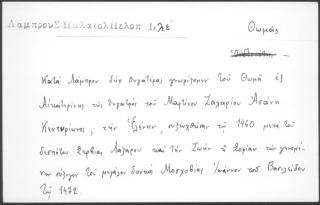 Λάμπρου Σ. Παλαιολ Πελοπ 1, λε'
Θωμᾶς
Κατὰ Λάμπρον δύο θυγατέρας γνωρίζομεν τοῦ Θωμᾶ ἐξ
Αἰκατερίνης τῆς θυγατρὸς τοῦ Μαρτίνου Ζαχαρίου Ἀσάνη
Κεντυρίωνος, τὴν Ἑλένην, συζευχθεῖσαν τῷ 1460 μετὰ τοῦ
δεσπότου Σερβίας Λαζάρου καὶ τὴν Ζωὴν ἢ Σοφίαν τὴν γενομέ-
νην σύζυγον τοῦ μεγάλου δουκὸς Μοσχοβίας Ἰωάννου τοῦ Βασιλείδου
τῷ 1472.